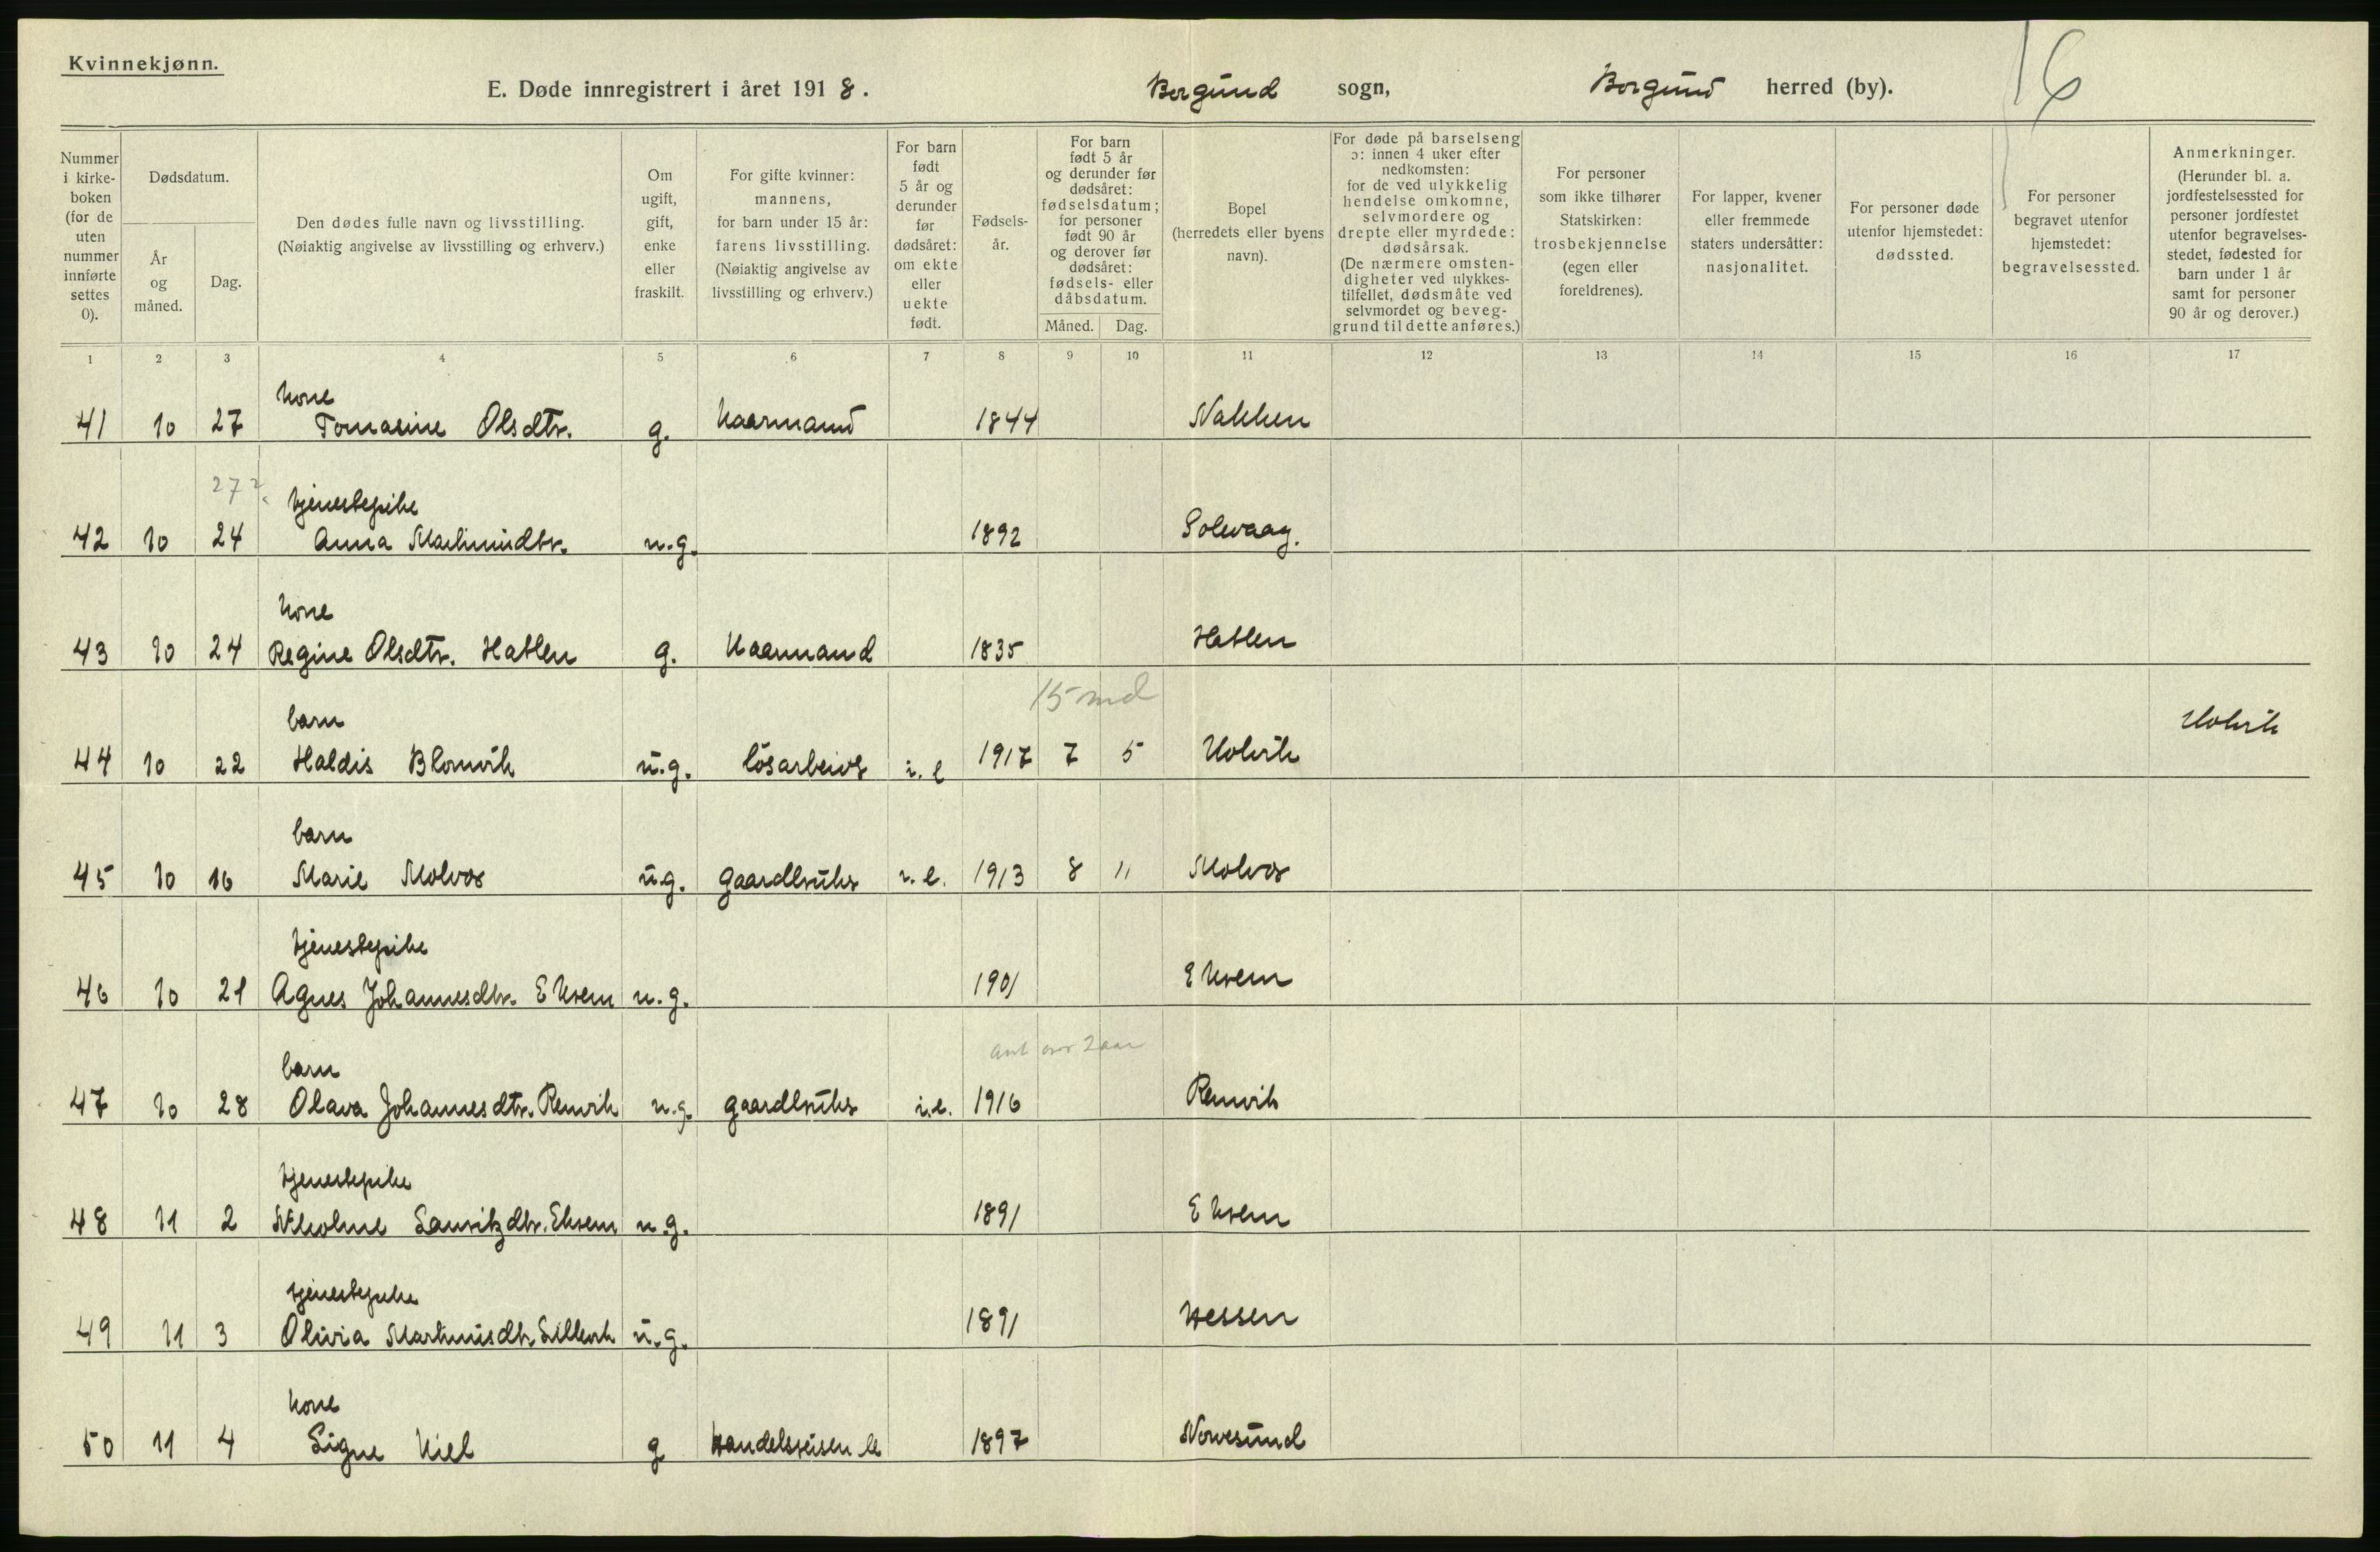 Kvinnekjønn.
E. Døde innregistrert i året 1918. Borgund sogn, Borgund herred (by). 16
Nummer i kirkeboken (for de uten nummer innførte settes 0).
Dødsdatum.
År og måned.
Dag.
Den dødes fulle navn og livsstilling.
(Nøiaktig angivelse av livsstilling og erhverv.)
Om ugift, gift, enke eller fraskilt.
For gifte kvinner: mannens, for barn under 15 år: farens livsstilling.
(Nøiaktig angivelse av livsstilling og erhverv.)
For barn født 5 år og derunder før dødsåret: om ekte eller uekte født.
Fødselsår.
For barn født 5 år og derunder før dødsåret: fødselsdatum; for personer født 90 år og derover før dødsåret: fødsels- eller dåbsdatum.
Måned. Dag.
Bopel
(herredets eller byens navn).
For døde på barselseng ɔ: innen 4 uker efter nedkomsten: for de ved ulykkelig hendelse omkomne, selvmordere og drepte eller myrdede: dødsårsak.
(De nærmere omstendigheter ved ulykkestilfellet, dødsmåte ved selvmordet og beveggrund til dette anføres.)
For personer som ikke tilhører Statskirken: trosbekjennelse (egen eller foreldrenes).
For lapper, kvener eller fremmede staters undersåtter: nasjonalitet.
For personer døde utenfor hjemstedet: dødssted.
For personer begravet utenfor hjemstedet: begravelsessted.
Anmerkninger.
(Herunder bl. a. jordfestelsessted for personer jordfestet utenfor begravelsesstedet, fødested for barn under 1 år samt for personer 90 år og derover.)
1 2 3 4 5 6 7 8 9 10 11 12 13 14 15 16 17
kone
41 10 27 Tomasine Olsdtr. g. Kaarmand 1844 Nakken
27?
tjenestepike
42 10 24 Anna Martinusdtr. u.g. 1892 Solevaag.
kone
43 10 24 Regine Olsdtr. Hatlen g. Kaarmand 1835 Hatlen
15 md
barn
44 10 22 Haldis Blomvik u.g. løsarbeider i. e 1917 7 5 Kolvik Kolvik
barn
45 10 16 Marie Molvær u.g. gaardbruker i. e. 1913 8 11 Molvær
tjenestepike
46 10 21 Agnes Johannesdtr. Ekrem u.g. 1901 Ekrem
ant over 2 aar
barn
47 10 28 Olava Johannesdtr. Remvik u.g. gaardbruker i.e. 1916 Remvik
tjenestepike
48 11 2 Lauritzdtr. Ekrem u.g. 1891 Ekrem
tjenestepike
49 11 3 Olivia Martinusdtr u.g. 1891 Hessen
kone
50 11 4 Signe Kiel g Handelsreisende 1897 Nørvesund